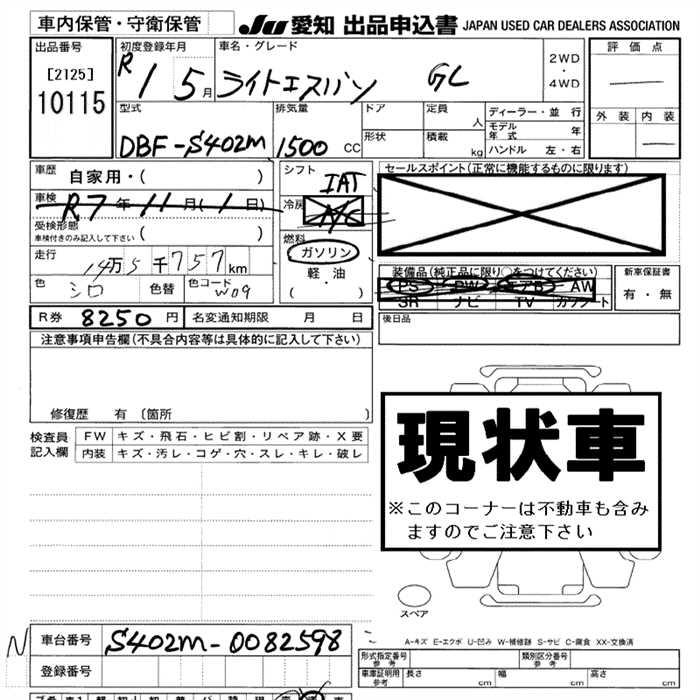 車内保管・守衛保管
JU 愛知 出品申込書 JAPAN USED CAR DEALERS ASSOCIATION
出品番号
[2125]
10115
初度登録年月
R1 5月
車名・グレード
ライトエースバン GL
2WD
・
4WD
評価点
外装 内装
型式
DBF-S402M
排気量
1500 CC
ドア
形状
定員 人
積載 kg
ディーラー・並行
モデル年式 年
ハンドル 左・右
車歴
自家用・( )
車検
R7年11月(1日)
受検形態
車検付きのみ記入して下さい ( )
走行
14万5千757km
色
シロ
色替
色コード
W09
シフト
IAT
冷房
A/C
燃料
ガソリン
軽・油
( ・ )
セールスポイント(正常に機能するものに限ります)
装備品(純正品に限り○をつけてください)
PS PW エアB AW
SR ナビ TV カワシート
新車保証書
有・無
R券 8250円
名変通知期限 月 日
後日品
注意事項申告欄(不具合内容等は具体的に記入して下さい)
修復歴 有〔箇所 〕
検査員
記入欄
FW キズ・飛石・ヒビ割・リペア跡・X要
内装 キズ・汚レ・コゲ・穴・スレ・キレ・破レ
現状車
※このコーナーは不動車も含み
ますのでご注意下さい
スペア
A-キズ E-エクボ U-凹み W-補修跡 S-サビ C-腐食 XX-交換済
N 車台番号 S402M-0082598
登録番号
形式指定番号
参考
類別区分番号
参考
車庫証明用
参考
長さ 幅 高さ